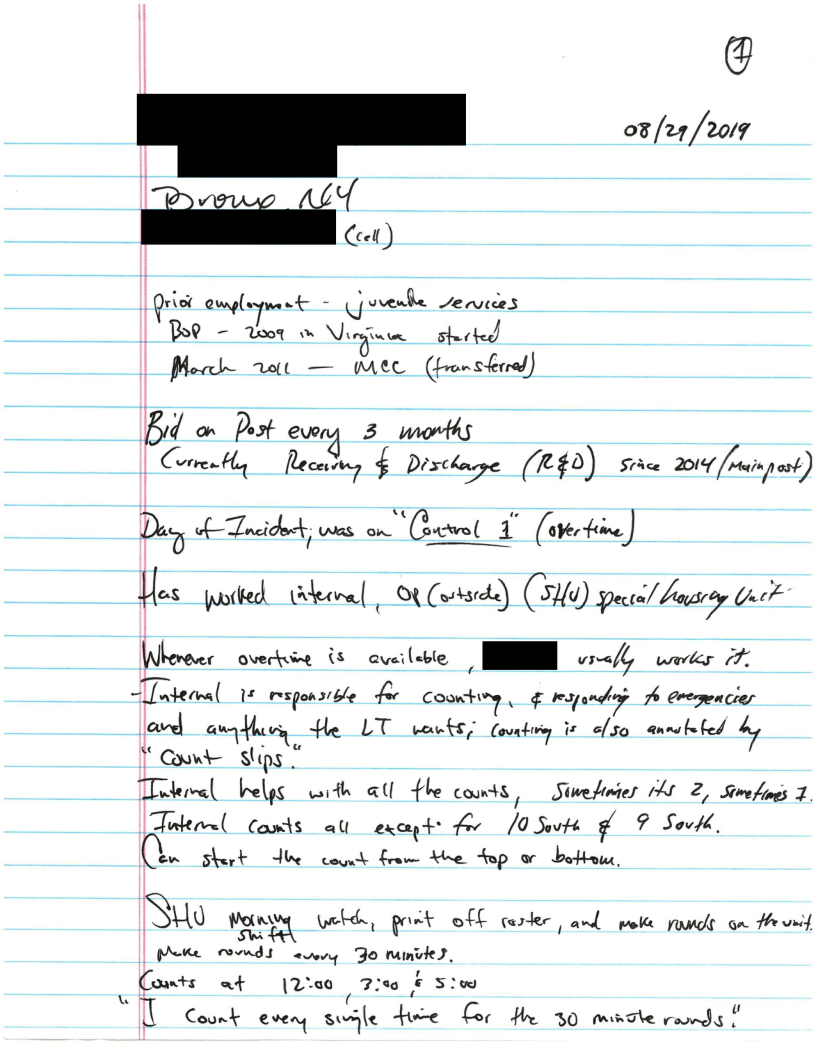 1
08/29/2019
Bronx NY
(cell)
prior employment - juvenile services
BOP - 2009 in Virginia started
March 2011 — MCC (transferred)
Bid on Post every 3 months
Currently Receiving & Discharge (R&D) since 2014 (main post)
Day of Incident, was on "Control 1" (overtime)
Has worked internal, OP (outside) (SHU) special housing Unit
Whenever overtime is available, usually works it.
- Internal is responsible for counting, & responding to emergencies
and anything the LT wants; counting is also annotated by
"Count slips."
Internal helps with all the counts, sometimes its 2, sometimes 1.
Internal counts all except for 10 South & 9 South.
Can start the count from the top or bottom.
SHU morning watch, print off roster, and make rounds on the unit.
shift
Make rounds every 30 minutes.
Counts at 12:00, 3:00 & 5:00
"I count every single time for the 30 minute rounds."